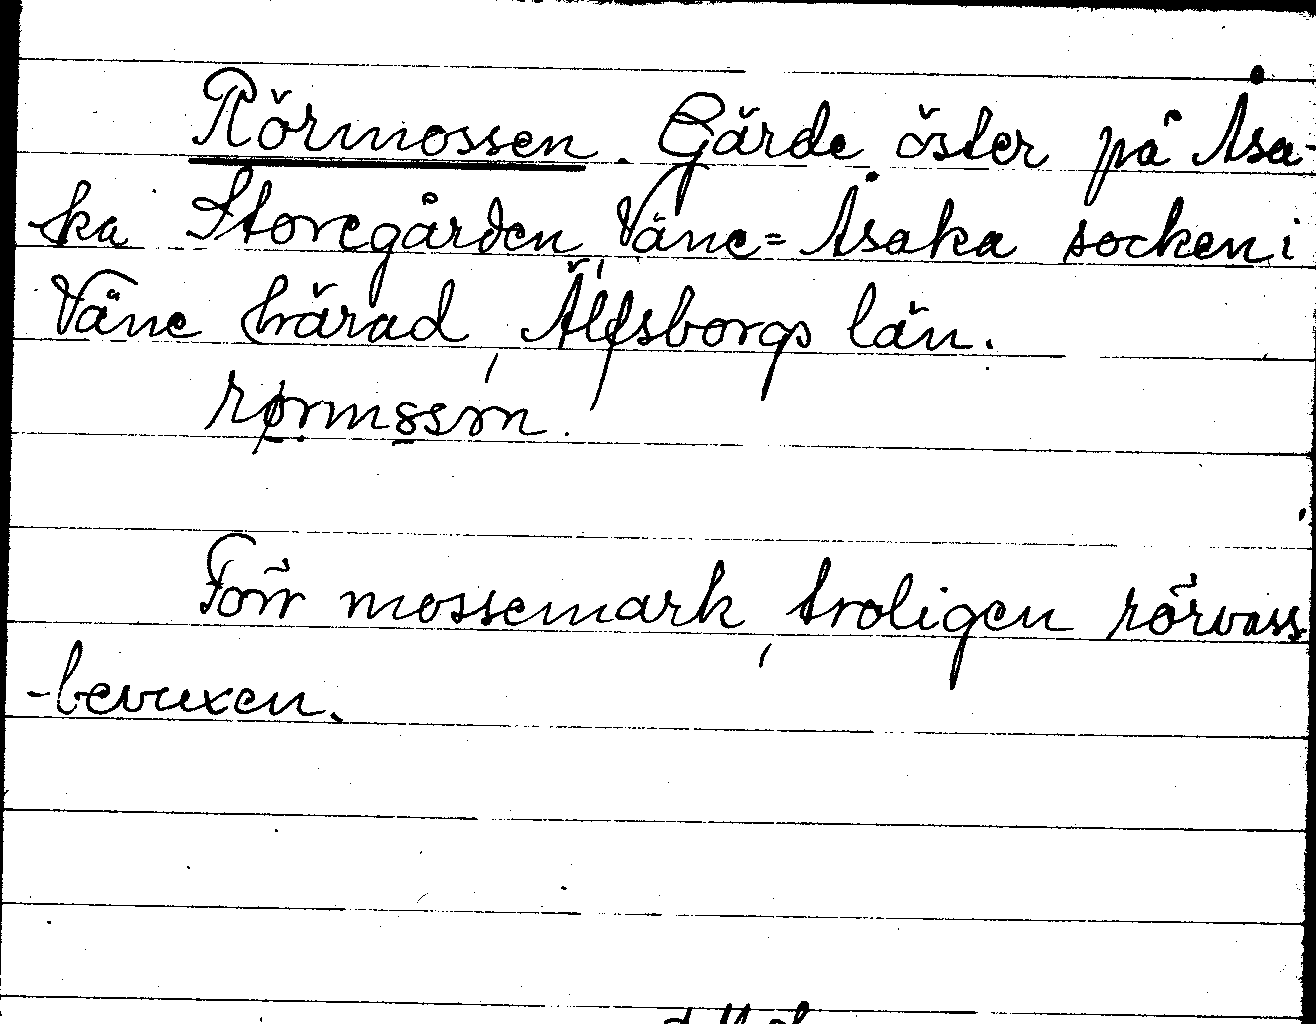 Rörmossen. Gärde öster på Åsa-
ka Storegården, Väne-Åsaka socken i
Väne härad, Älfsborgs län.
Förr mossemark, troligen rörvass
-bevuxen.